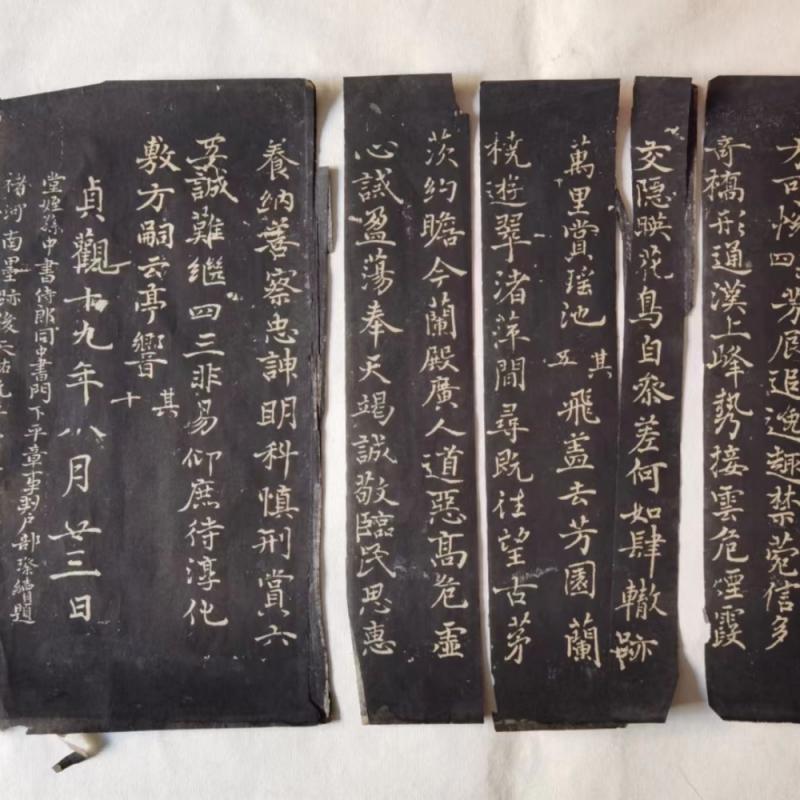 方可悦四芳辰追逸趣禁苑信多
奇橋形通漢上峰勢接雲危煙霞
交隱映花鳥自叅差何如肆轍跡
萬里賞瑶池其五飛盖去芳園蘭
橈遊翠渚萍間尋既往望古茅
茨約瞻今蘭殿廣人道惡高危虛
心誡盈蕩奉天竭誠敬臨民思惠
養納善察忠諫明科慎刑賞六
五誠難繼四三非易仰庶待淳化
敷方嗣云亭響其十
貞觀十九年八月廿三日
堂姪孫中書侍郎同中書門下平章事判户部璨續題
褚河南墨跡後天祐元